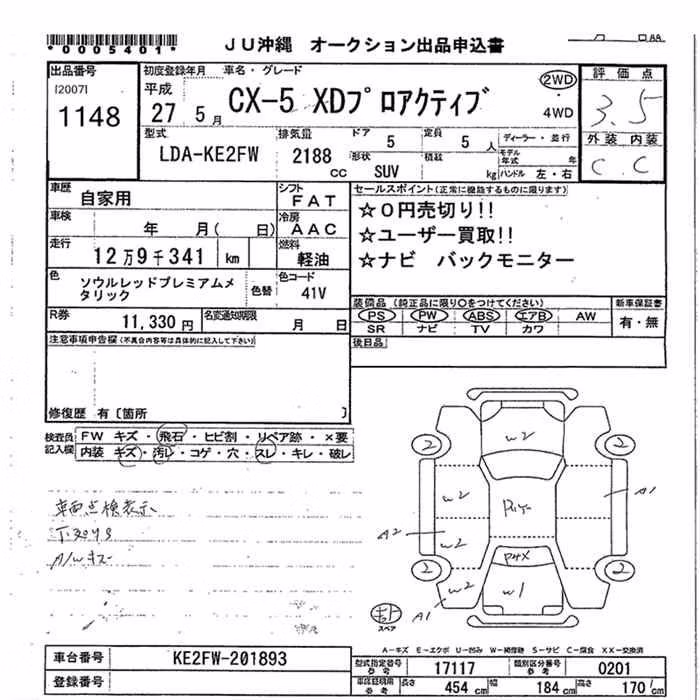 *0005401*
JU沖縄 オークション出品申込書
出品番号
[2007]
1148
初度登録年月
平成
27 5月
車名・グレード
CX-5 XDプロアクティブ
2WD
4WD
評価点
3.5
外装 内装
C C
型式
LDA-KE2FW
排気量
2188 cc
ドア 5
形状 SUV
定員 5 人
積載 kg
ディーラー・並行
モデル年式 年
ハンドル 左・右
車歴 自家用
シフト FAT
車検 年 月( 日)
冷房 AAC
走行 12万9千341 km
燃料 軽油
色 ソウルレッドプレミアムメタリック
色替
色コード 41V
R券 11,330円
名変通知期限 月 日
セールスポイント(正常に機能するものに限ります)
☆0円売切り!!
☆ユーザー買取!!
☆ナビ バックモニター
装備品(純正品に限り〇をつけてください)
PS PW ABS エアB AW
SR ナビ TV カワ
新車保証書
有・無
後日品
注意事項申告欄(不具合内容等は具体的に記入して下さい)
修復歴 有〔箇所 〕
検査員記入欄
FW キズ・飛石・ヒビ割・リペア跡・×要
内装 キズ・汚レ・コゲ・穴・スレ・キレ・破レ
A/Wキズ
2
2
2
2
W2
W2
W2
W2
W1
A1
A2
A1
スペア
A-キズ E-エクボ U-凹み W-補修跡 S-サビ C-腐食 XX-交換済
車台番号 KE2FW-201893
登録番号
型式指定番号 参考 17117
類別区分番号 参考 0201
車庫証明用 参考
長さ 454 cm
幅 184 cm
高さ 170 cm